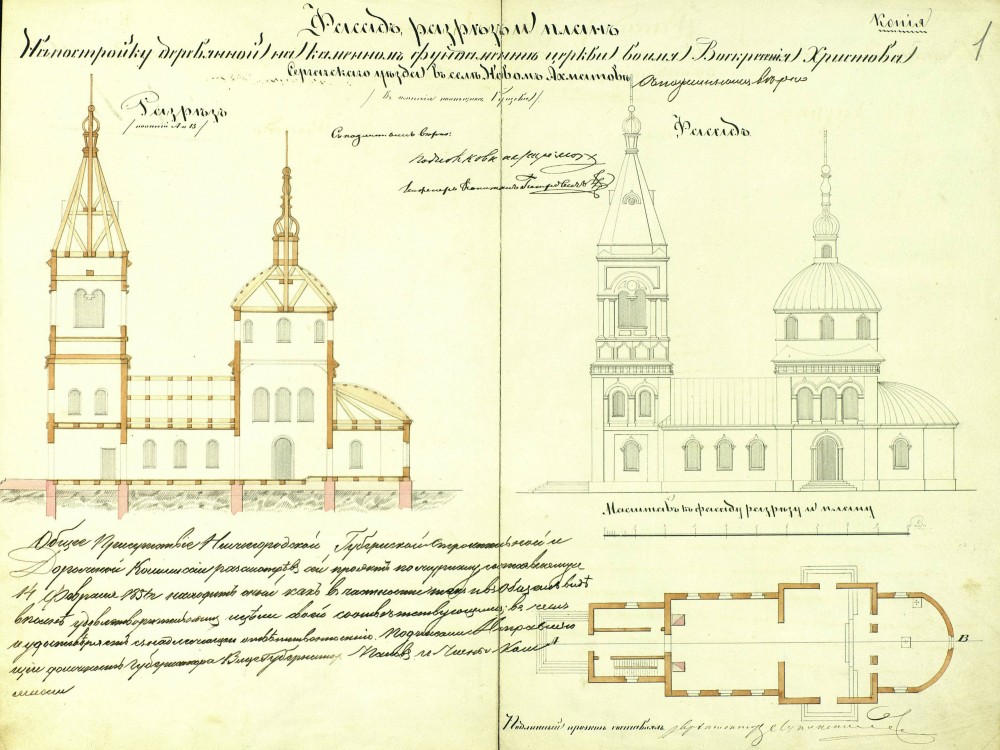 Копія
1
Фасадъ, разрѣзъ и планъ
На постройку деревянной на каменномъ фундаментѣ церкви во имя Воскресенія Христова
Сергачскаго уѣзда въ селѣ Новомъ Ахматовѣ
Разрѣзъ
/ по линіи А и В /
Съ подлиннымъ вѣрно:
Фасадъ
Инженеръ Капитанъ
Масштабъ къ фасаду разрѣзу и плану
Общее Присутствіе Нижегородской Губернской Строительной и
Дорожной Коммисіи разсмотрѣвъ сей проэктъ по журналу составленному
14 февраля находитъ оный какъ въ частности такъ и въ общемъ видѣ
вполнѣ удовлетворительнымъ и цѣли своей соотвѣтствующимъ, въ чемъ
и удостовѣряетъ съ надлежащею отвѣтственностію. Подписали: Исправляю
щій должность Губернатора Вице Губернаторъ и Члены Ком
мисіи
А
В
Подлинный проэктъ составлялъ